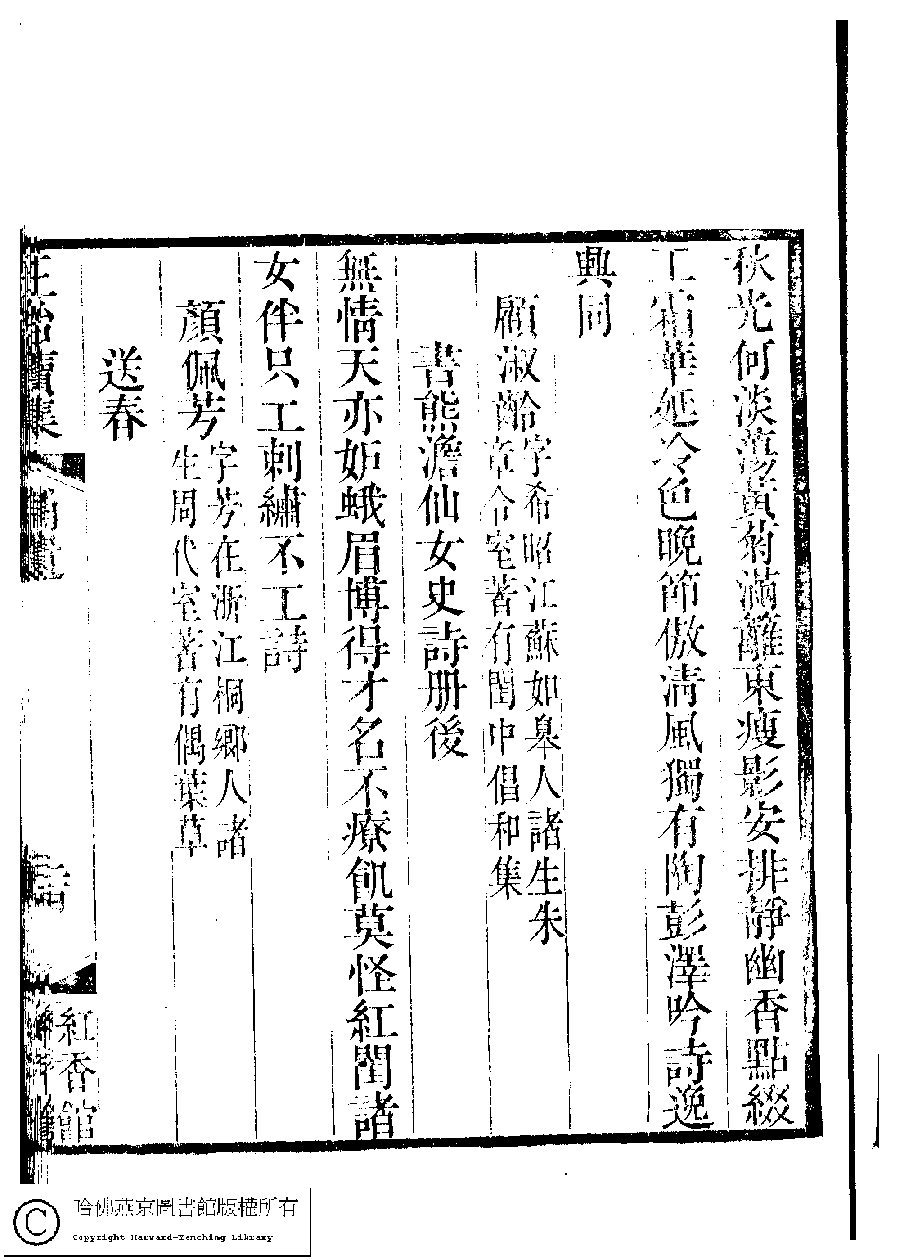 秋光何淡蕩黃菊滿籬東瘦影安排靜幽香點綴
工霜華延冷色晚節傲淸風獨有陶彭澤吟詩逸
興同
顧淑齡字希昭江蘇如皋人諸生朱
章令室著有閨中倡和集
書熊澹仙女史詩册後
無情天亦妒蛾眉博得才名不療飢莫怪紅閨諸
女伴只工刺繡不工詩
顏佩芳字芳在浙江桐鄉人諸
生周代室著有偶葉草
送春
正始續集
補遺
紅香館
哈佛燕京圖書館版權所有
Copyright Harvard-Yenching Library